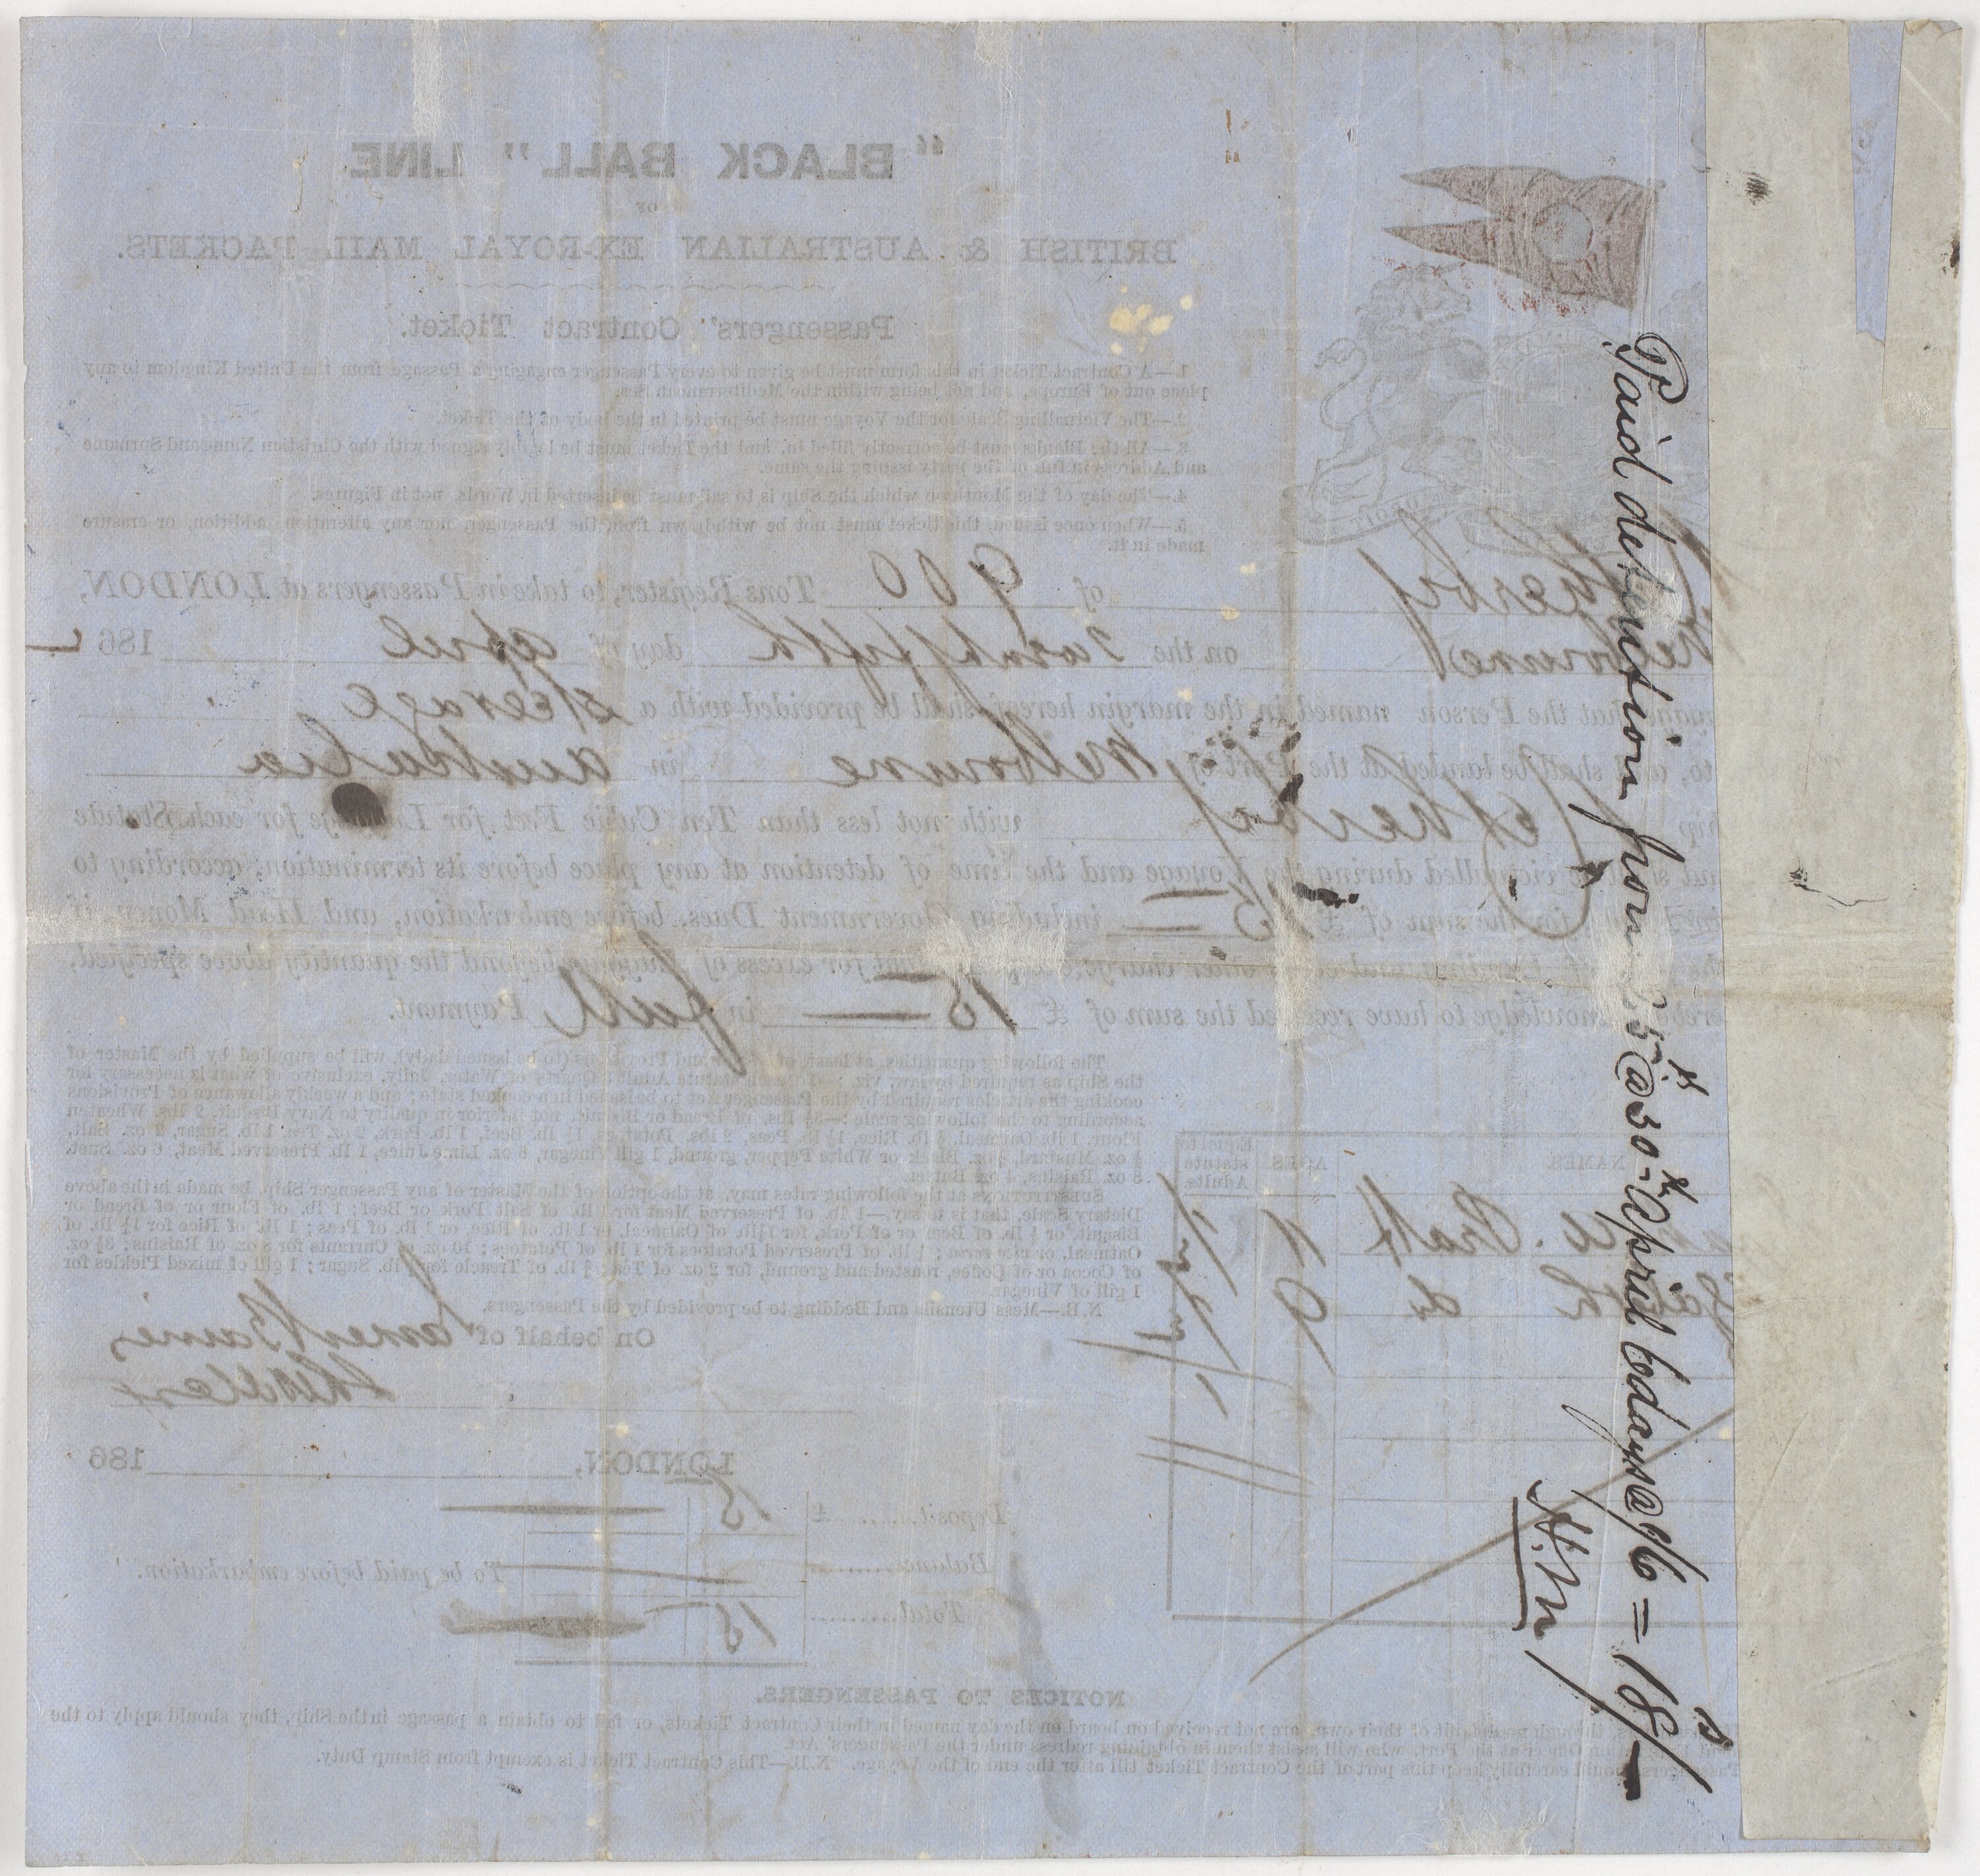 "BLACK BALL" LINE
OF
BRITISH & AUSTRALIAN EX-ROYAL MAIL PACKETS.
Passengers' Contract Ticket.
1.—A Contract Ticket in this form must be given to every Passenger engaging a Passage from the United Kingdom to any
place out of Europe, and not being within the Mediterranean Sea.
2.—The Victualling Scale for the Voyage must be printed in the body of the Ticket.
3.—All the Blanks must be correctly filled in, and the Ticket must be legibly signed with the Christian Name and Surname
and Address in full of the party issuing the same.
4.—The day of the Month on which the Ship is to sail must be inserted in Words, not in Figures.
5.—When once issued, this ticket must not be withdrawn from the Passenger, nor any alteration, addition, or erasure
made in it.
of 900 Tons Register, to take in Passengers at LONDON,
Melbourne on the Twenty fifth day of April 1862
that the Person named in the margin hereof shall be provided with a Steerage
to, and shall be landed at the Port of Melbourne in Australia
Netherby with not less than Ten Cubic Feet for Luggage for each Statute
and shall be victualled during the Voyage and the time of detention at any place before its termination, according to
for the sum of £ 15 including Government Dues before embarkation, and Head Money, if
for excess of Luggage beyond the quantity above specified,
acknowledge to have received the sum of £ 15 in full Payment.
The following quantities, at least, of Water and Provisions (to be issued daily), will be supplied by the Master of
the Ship as required by law, viz.:—To each Statute Adult 3 Quarts of Water, daily, exclusive of what is necessary for
cooking the articles required by the Passengers Act to be issued in a cooked state; and a weekly allowance of Provisions
according to the following scale:—3½ lbs. of Bread or Biscuit, not inferior in quality to Navy Biscuit, 2 lbs. Wheaten
Flour, 1 lb Oatmeal, lb. Rice, 1½ lb. Peas, 2 lbs. Potatoes, 1¼ lb. Beef, 1 lb. Pork, 2 oz. Tea, 1 lb. Sugar, 2 oz. Salt,
½ oz. Mustard, ¼ oz. Black or White Pepper, ground, 1 gill Vinegar, 6 oz. Lime Juice, 1 lb. Preserved Meat, 6 oz. Suet,
8 oz. Raisins, 4 oz. Butter.
SUBSTITUTIONS at the following rates may, at the option of the Master of any Passenger Ship, be made in the above
Dietary Scale, that is to say,—1 lb. of Preserved Meat for 1 lb. of Salt Pork or Beef; 1 lb. of Flour or of Bread or
Biscuit, or ½ lb. of Beef or of Pork, for 1¼ lb. of Oatmeal, or 1 lb. of Rice, or 1 lb. of Peas; 1 lb. of Rice for 1¼ lb. of
Oatmeal, or vice versa; ¼ lb. of Preserved Potatoes for 1 lb. of Potatoes; 10 oz. of Currants for 8 oz. of Raisins; 3½ oz.
of Cocoa or of Coffee, roasted and ground, for 2 oz. of Tea; ¾ lb. of Treacle for ½ lb. Sugar; 1 gill of mixed Pickles for
1 gill of Vinegar.
N.B.—Mess Utensils and Bedding to be provided by the Passengers.
NAMES. AGES. Equal to statute Adults.
Pratt 11
do 9
On behalf of James Baines
LONDON, 186
Deposit £ 15
Balance To be paid before embarkation.
Total 15
NOTICES TO PASSENGERS.
through no default of their own, are not received on board on the day named in their Contract Tickets, or fail to obtain a passage in the Ship, they should apply to the
Officer at the Port, who will assist them in obtaining redress under the Passengers' Act.
Passengers should carefully keep this part of the Contract Ticket till after the end of the Voyage. N.B.—This Contract Ticket is exempt from Stamp Duty.
Paid detention from 25th @ 30th April 6 days @ = 18/-
H.M